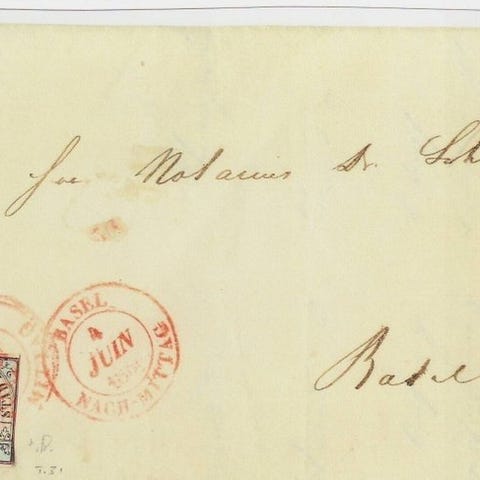 Herr Notarius Dr. Sch
BASEL
4
JUIN
NACH-MITTAG
Basel
T.31